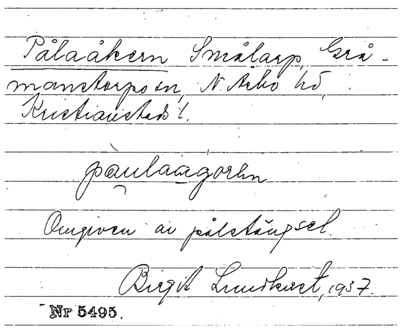 Pålaåkern Smålarp, Grå-
manstorps sn, N. Åsbo hd,
Kristianstads l.
pàulaagorhn
Omgiven av pålstängsel.
Birgit Lundkvist, 1937.
Nr 5495.